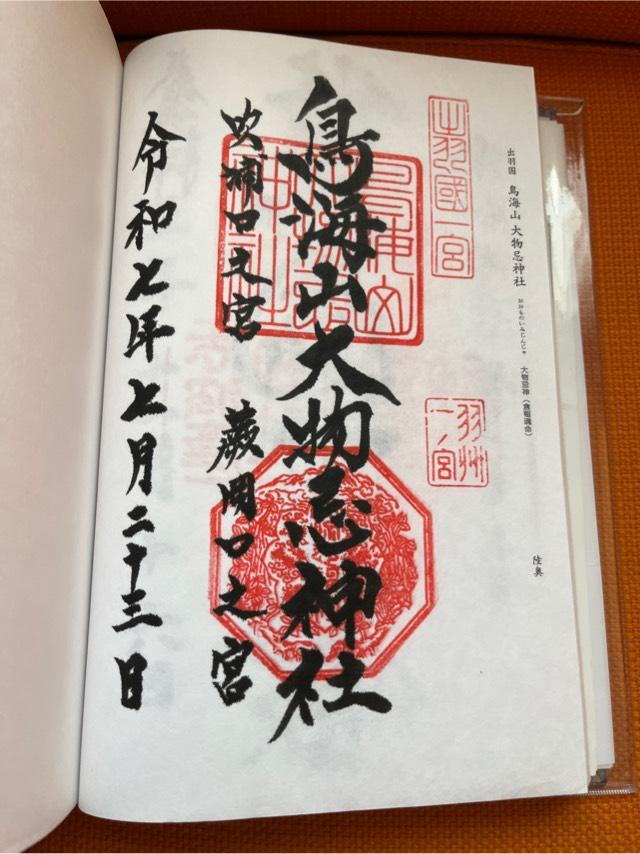 出羽国 鳥海山 大物忌神社 おおものいみじんじゃ 大物忌神（倉稲魂命）
陸奥
出羽國一宮
羽州
一ノ宮
鳥海山大物忌神社
吹浦口之宮
蕨岡口之宮
令和七年七月二十三日